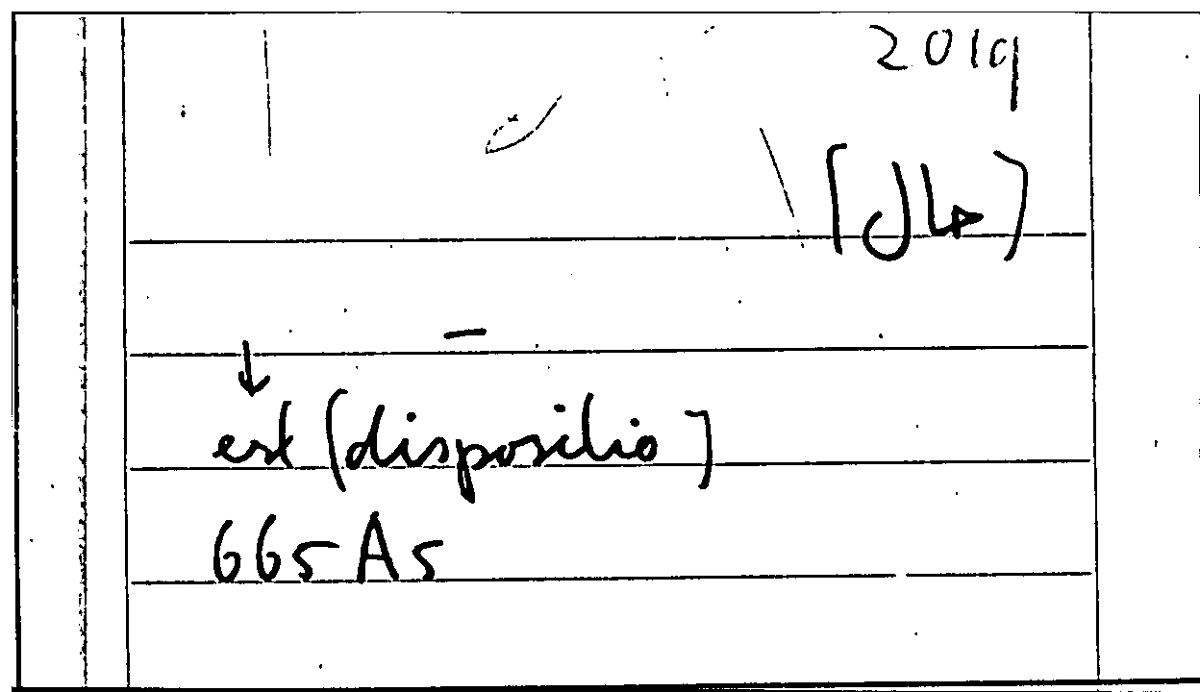 2019
est (dispositio]
665 A5